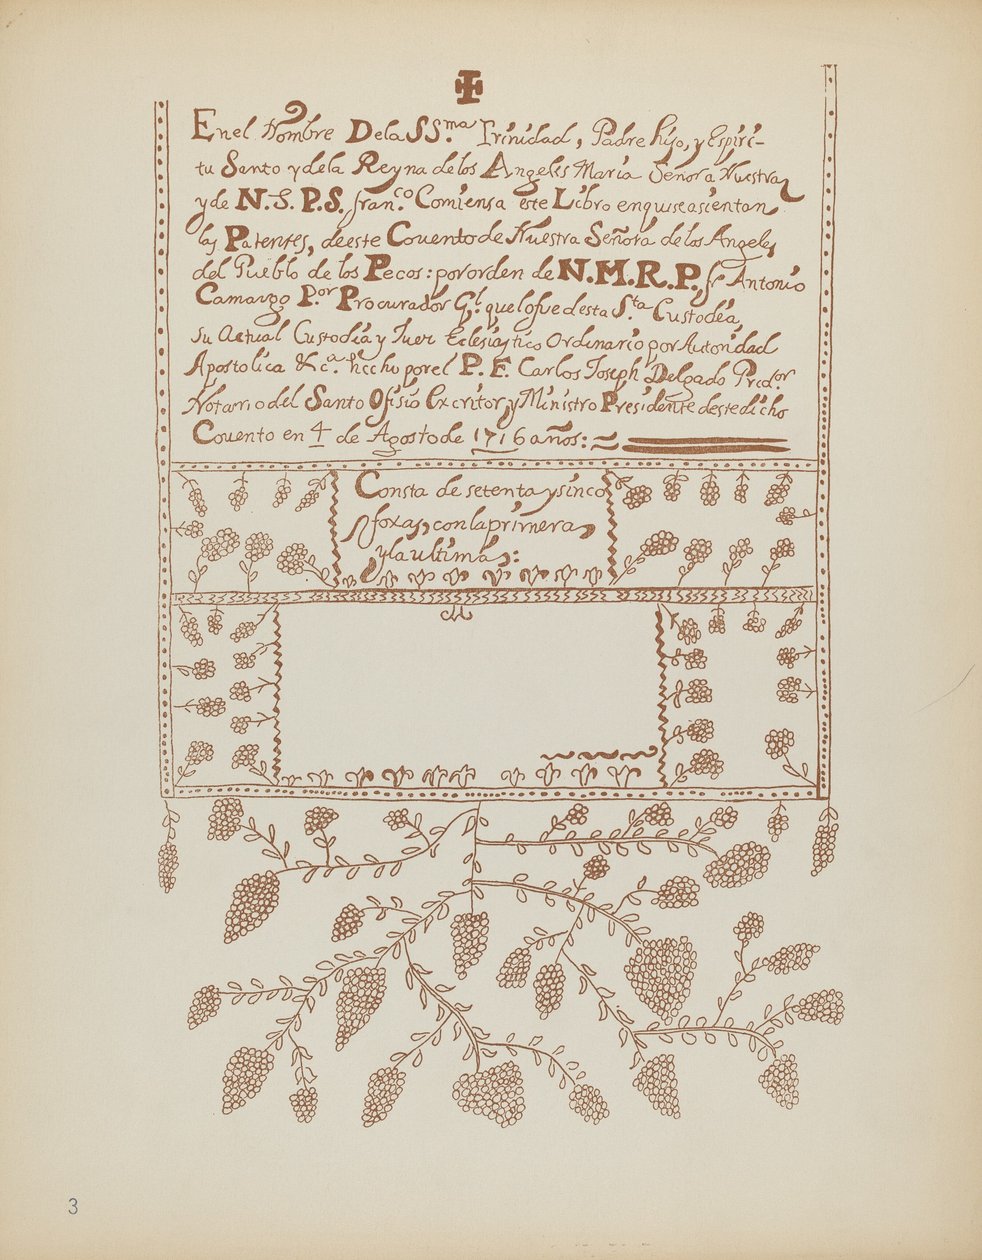 En el Nombre De la SS.ma Trinidad, Padre hijo, y Espiri-
tu Santo y de la Reyna de los Angeles Maria Señora Nuestra
y de N. S. P. S. fran.co Comiensa este Libro en quise asientan
las Patentes, de este Convento de Nuestra Señora de los Angeles
del Pueblo de los Pecos: por orden de N. M. R. P. fr Antonio
Camargo P.or Procurador G.l que lo fue desta S.ta Custodia,
su Actual Custodia y Juez Eclesiastico Ordinario por Autoridad
Apostolica &c.a hecho por el P. F. Carlos Joseph Delgado Pred.or
Notario del Santo Ofisio Excritor, y Ministro Presidente deste dicho
Covento en 4 de Agosto de 1716 años:
Consta de setenta y sinco
foxas, con la primera
y la ultima:
3